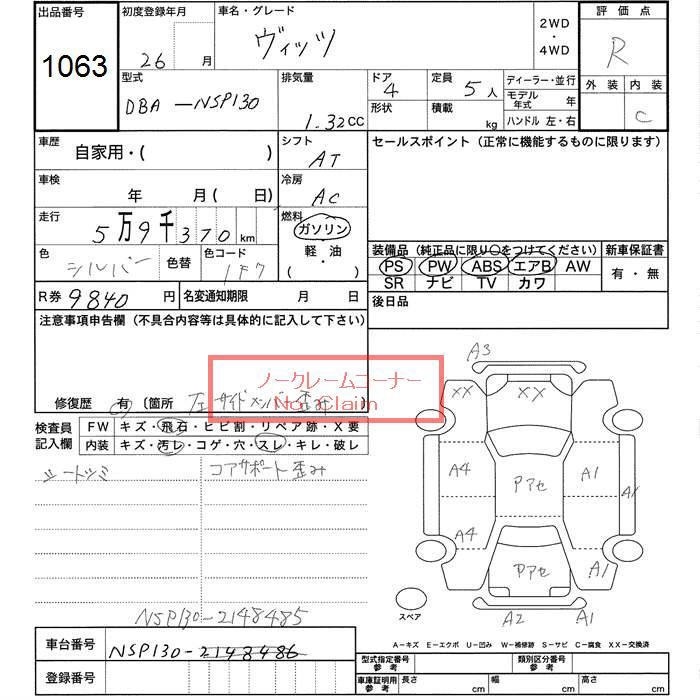 出品番号 初度登録年月 車名・グレード 2WD ・ 4WD 評価点
1063 26 月 ヴィッツ R
型式 排気量 ドア 定員 ディーラー・並行 外装 内装
DBA-NSP130 1.32CC 4 5人 モデル年式 年 C
形状 積載 kg ハンドル 左・右
車歴 自家用・( ) シフト AT セールスポイント(正常に機能するものに限ります)
車検 年 月( 日) 冷房 AC
走行 5万9千370km 燃料 ガソリン・軽・油 ( )
色 シルバー 色替 色コード 1F7
装備品(純正品に限り○をつけてください) 新車保証書
PS PW ABS エアB AW 有・無
SR ナビ TV カワ
R券 9840円 名変通知期限 月 日 後日品
注意事項申告欄(不具合内容等は具体的に記入して下さい)
ノークレームコーナー
Non Claim
修復歴 有 〔箇所 左サイドメンバー歪み 〕
検査員記入欄 FW キズ・飛石・ヒビ割・リペア跡・X要
内装 キズ・汚レ・コゲ・穴・スレ・キレ・破レ
シートシミ コアサポート歪み
A3
XX XX
A4 Pアセ A1 A1
A4
Pアセ A1
スペア A2 A1
NSP130-2148485
A-キズ E-エクボ U-凹み W-補修跡 S-サビ C-腐食 XX-交換済
車台番号 NSP130-2148486
登録番号
型式指定番号 参考 類別区分番号 参考
車庫証明用 参考 長さ cm 幅 cm 高さ cm